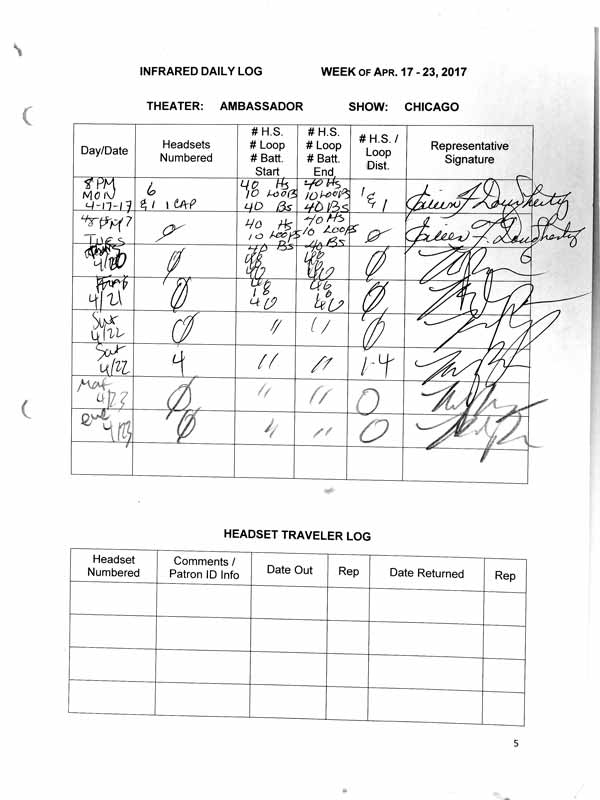 INFRARED DAILY LOG WEEK OF APR. 17 - 23, 2017
THEATER: AMBASSADOR SHOW: CHICAGO
Day/Date
Headsets
Numbered
# H.S.
# Loop
# Batt.
Start
# H.S.
# Loop
# Batt.
End
# H.S. /
Loop
Dist.
Representative
Signature
8 PM
MON
4-17-17
6
& 1 1 CAP
40 HS
10 LOOPS
40 BS
40 HS
10 LOOPS
40 BS
1
& 1
Eileen F. Dougherty
TUES
Ø
40 HS
10 LOOPS
40 BS
40 HS
10 LOOPS
40 BS
Ø
Eileen F. Dougherty
4/20
Ø
40
40
Ø
4/21
Ø
40
10
40
40
10
40
Ø
Sat
4/22
Ø
"
"
Ø
Sat
4/22
4
"
"
1-4
Mat
4/23
Ø
"
"
O
eve
4/23
Ø
"
"
O
HEADSET TRAVELER LOG
Headset
Numbered
Comments /
Patron ID Info
Date Out
Rep
Date Returned
Rep
5